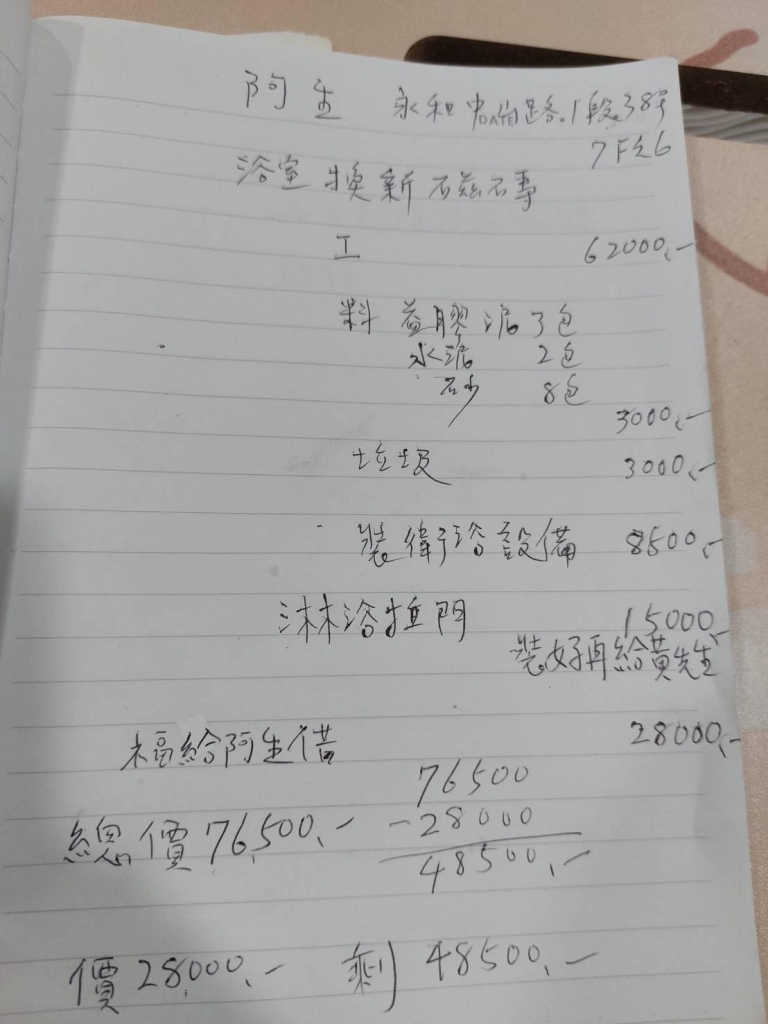 阿生 永和中山路1段38号
7F之6
浴室換新磁磚
工 62000.-
料 益膠泥3包
水泥 2包
砂 8包
3000.-
垃圾 3000.-
裝衛浴設備 8500.-
淋浴拉門 15000.-
裝好再給黃先生
福給阿生借 28000.-
76500
總價76,500.- -28000
48500.-
價28,000.- 剩48500.-